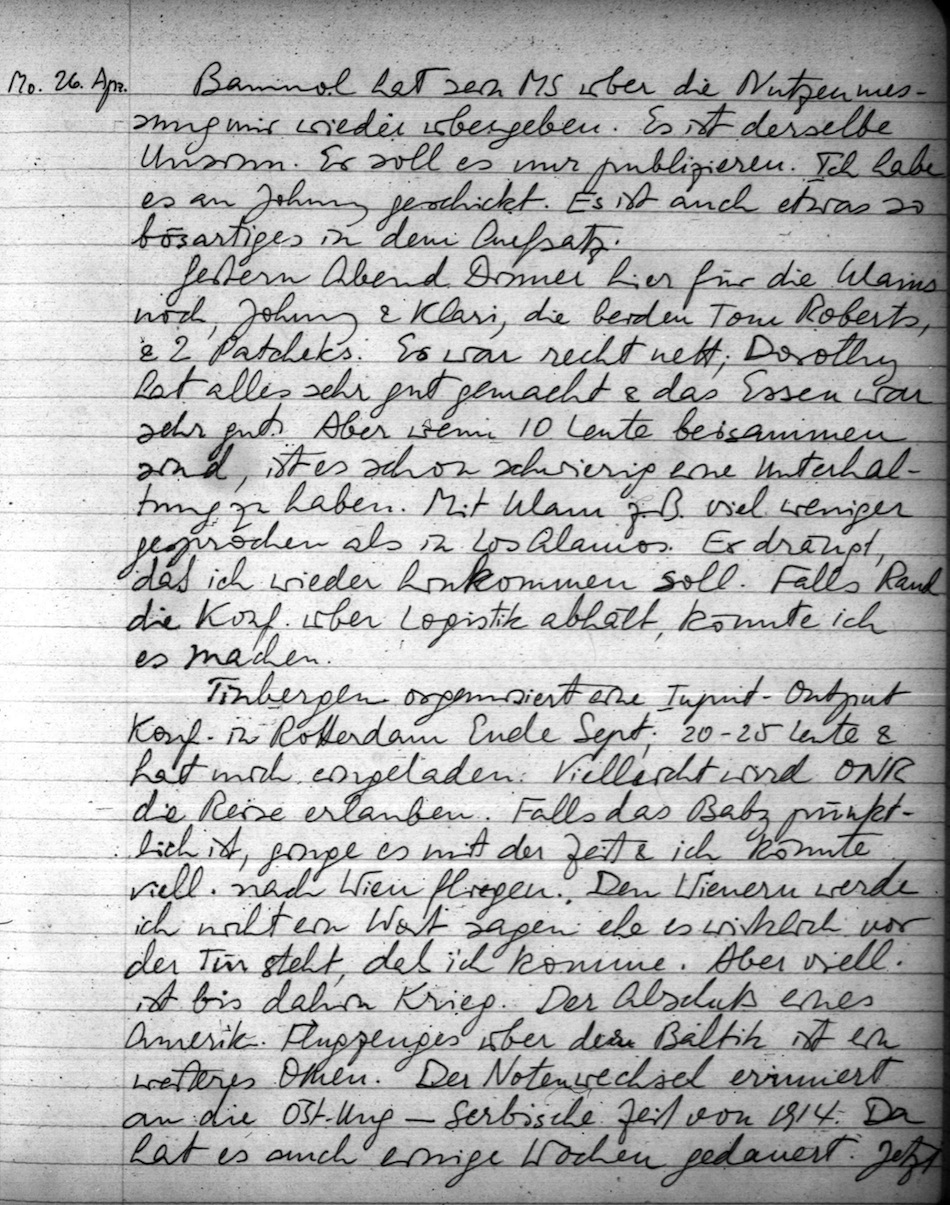 Mo. 26. Apr. Baumol hat sein MS über die Nutzenmes-
sung mir wieder übergeben. Es ist derselbe
Unsinn. Er soll es nur publizieren. Ich habe
es an Johnny geschickt. Es ist auch etwas so
bösartiges in dem Aufsatz.
Gestern Abend Dinner hier für die Ulams
noch, Johnny & Klari, die beiden Tom Roberts,
& 2 Patcheks. Es war recht nett; Dorothy
hat alles sehr gut gemacht & das Essen war
sehr gut. Aber wenn 10 Leute beisammen
sind, ist es schon schwierig eine Unterhal-
tung zu haben. Mit Ulam z.B. viel weniger
gesprochen als in Los Alamos. Er drängt,
daß ich wieder hinkommen soll. Falls Rand
die Konf. über Logistik abhält, könnte ich
es machen.
Tinbergen organisiert eine Input-Output
Konf. in Rotterdam Ende Sept; 20-25 Leute &
hat mich eingeladen. Vielleicht wird ONR
die Reise erlauben. Falls das Baby pünkt-
lich ist, ginge es mit der Zeit & ich könnte
viell. nach Wien fliegen. Den Wienern werde
ich nicht ein Wort sagen ehe es wirklich vor
der Tür steht, daß ich komme. Aber viell.
ist bis dahin Krieg. Der Abschuß eines
Amerik. Flugzeuges über dem Baltik ist ein
weiteres Omen. Der Notenwechsel erinnert
an die Öst-Ung — Serbische Zeit von 1914. Da
hat es auch einige Wochen gedauert. Jetzt